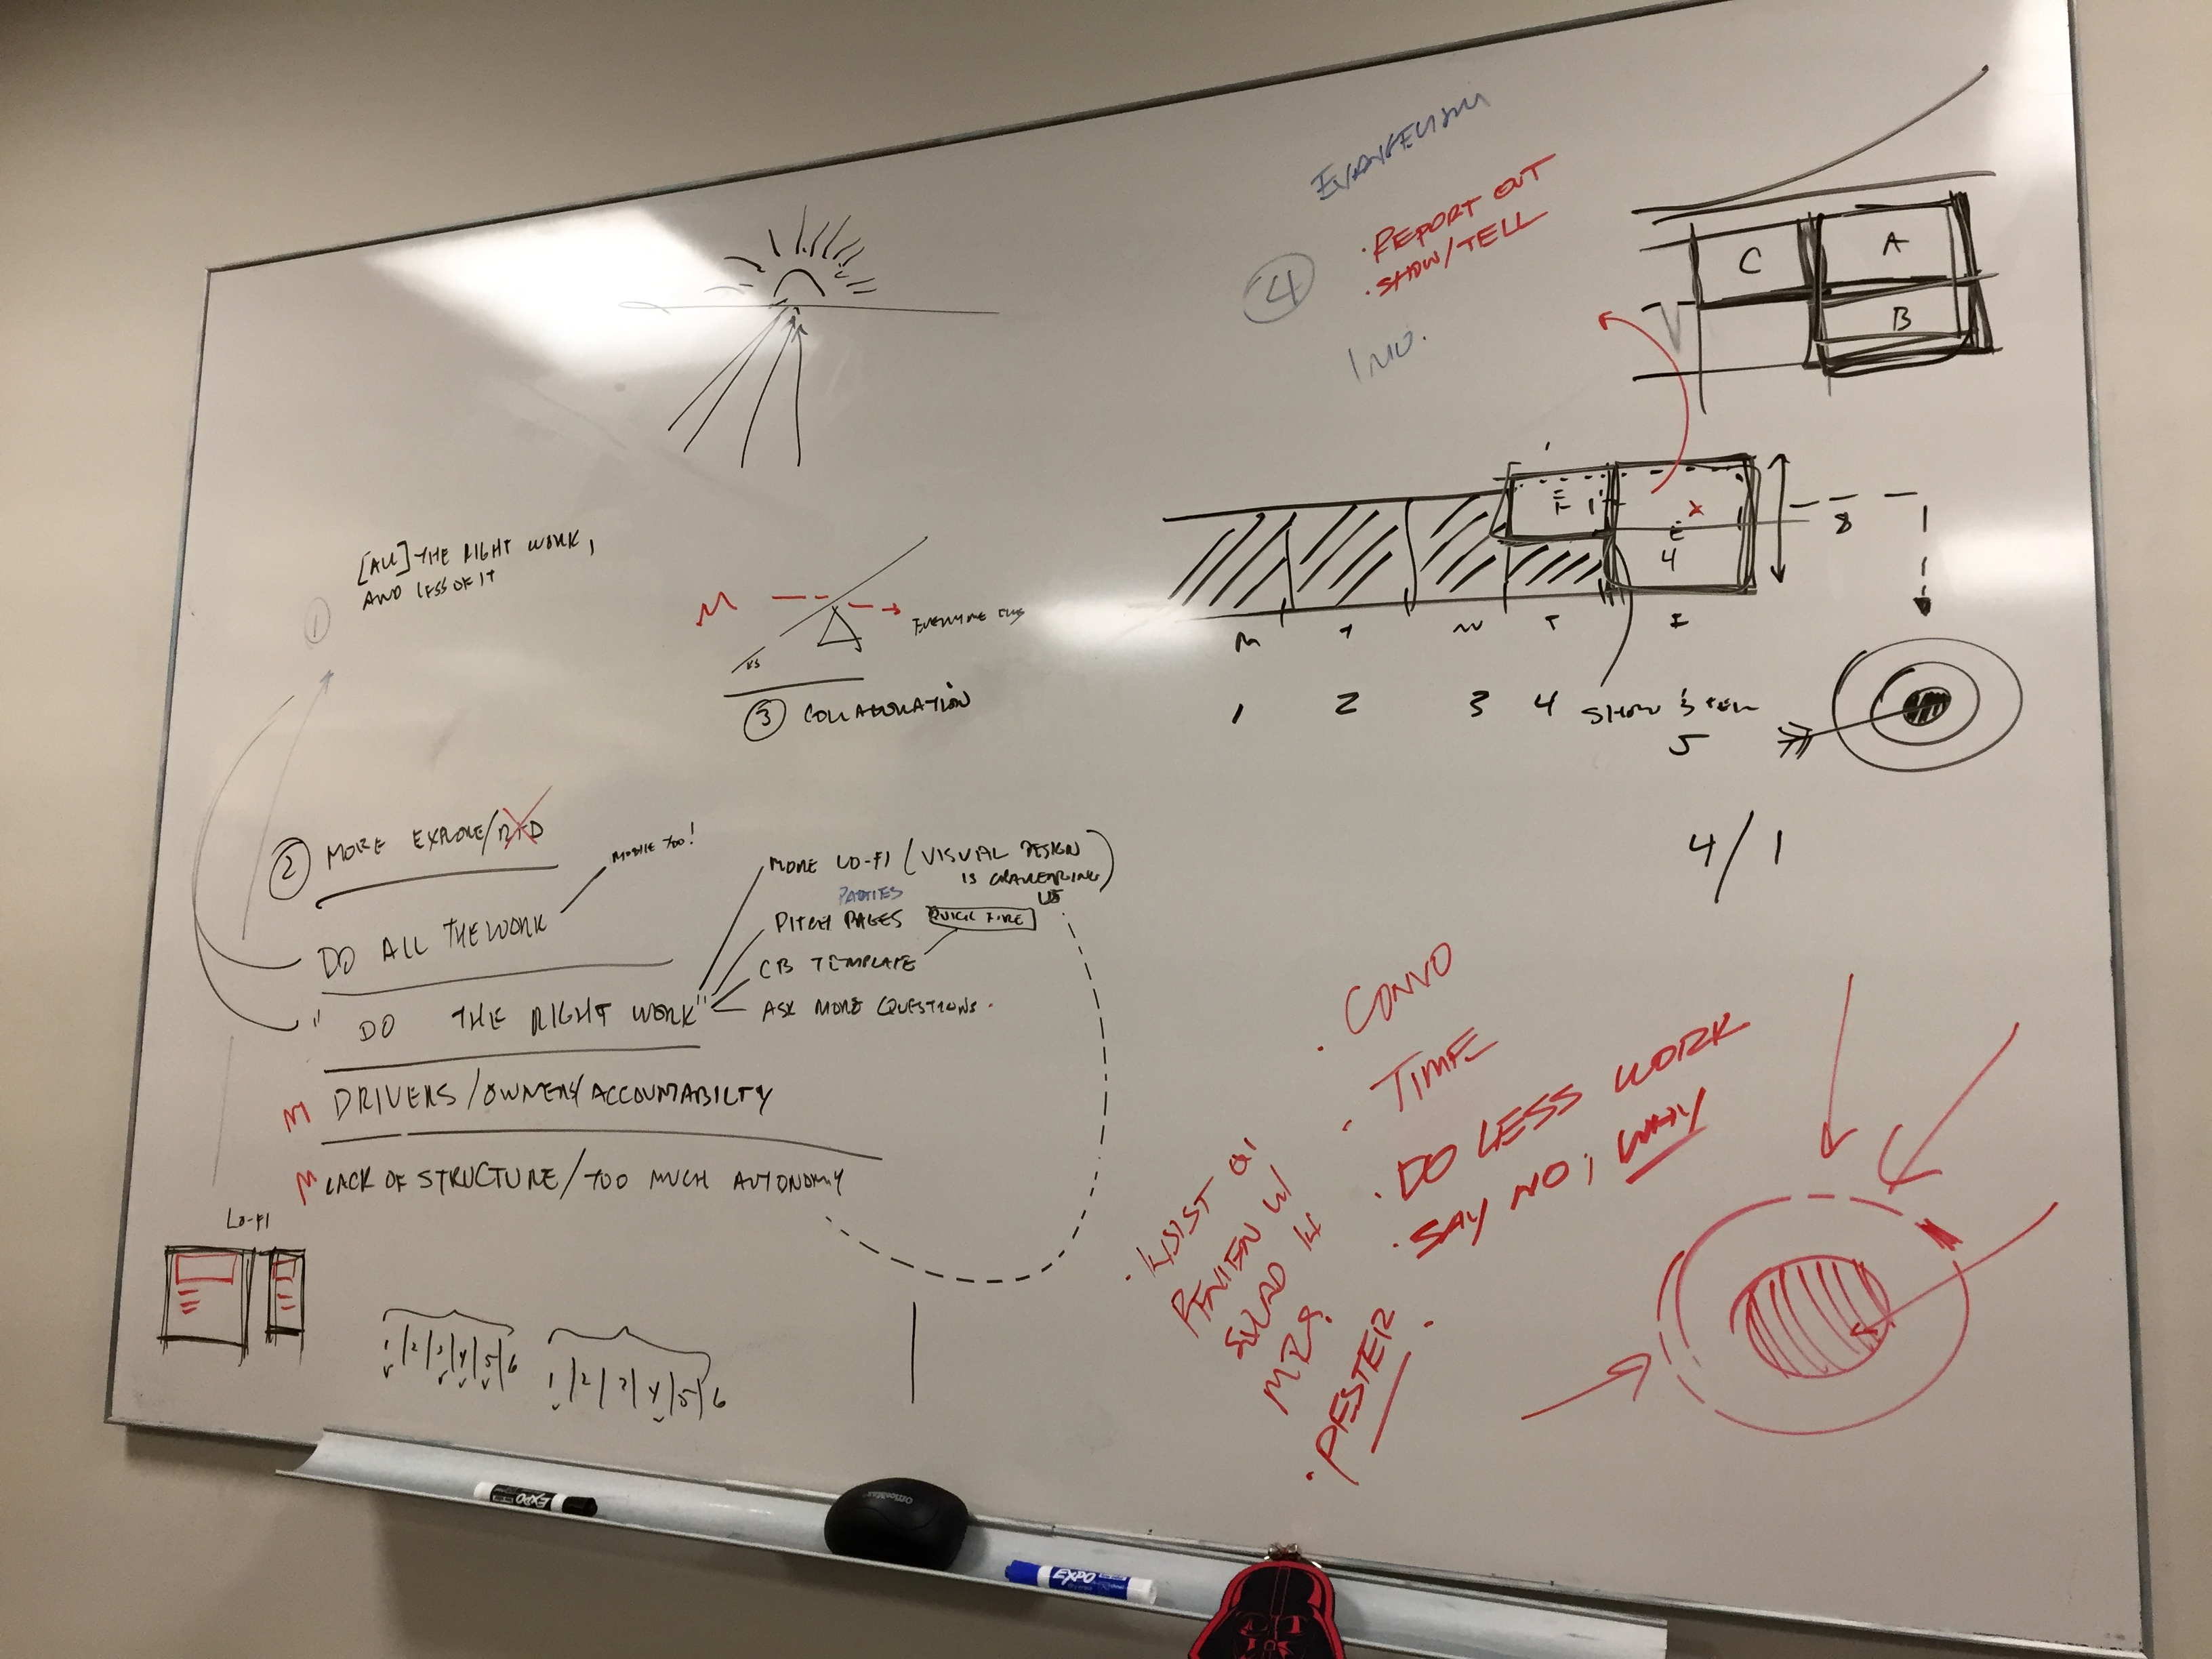 EVANGELISM
• REPORT OUT
• SHOW/TELL
4
INO.
C A
B
[ALL] THE RIGHT WORK,
AND LESS OF IT
1
M
EVERYTHING ELSE
3 COLLABORATION
F 1
X
E
4
8
M T W T F
1 2 3 4 5
SHOW & TELL
4/1
2 MORE EXPLORE/R+D
MOBILE TOO!
DO ALL THE WORK
"DO THE RIGHT WORK"
MORE LO-FI (VISUAL DESIGN
IS CRATERING
US)
PARTIES
PITCH PAGES QUICK FIRE
CB TEMPLATE
ASK MORE QUESTIONS.
M DRIVERS/OWNERS/ACCOUNTABILTY
M LACK OF STRUCTURE/TOO MUCH AUTONOMY
LO-FI
1|2|3|4|5|6
1|2|3|4|5|6
• CONVO
• TIME
• DO LESS WORK
• SAY NO, WHY
SQUAD
• PESTER
EXPO
OfficeMax
EXPO